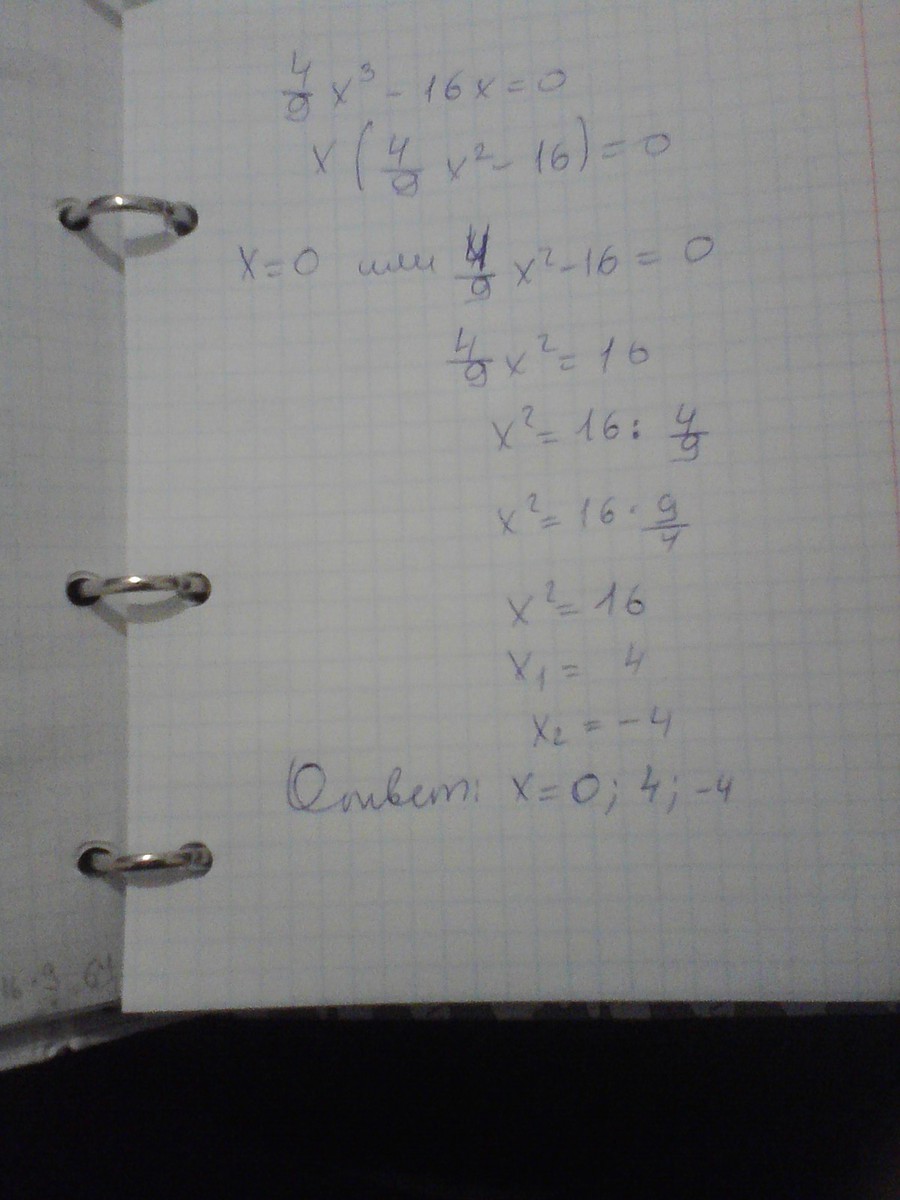 4/9 x³ - 16x = 0
x(4/9 x² - 16) = 0
x = 0 или 4/9 x² - 16 = 0
4/9 x² = 16
x² = 16 : 4/9
x² = 16 · 9/4
x² = 16
x₁ = 4
x₂ = -4
Ответ: x = 0; 4; -4